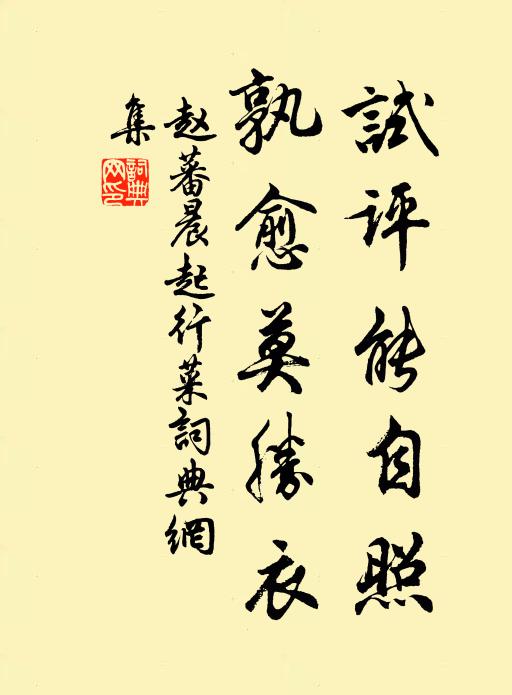 試評能自照
孰愈莫勝衣
赵蕃晨起行菜詞典網
集
詞典
网印